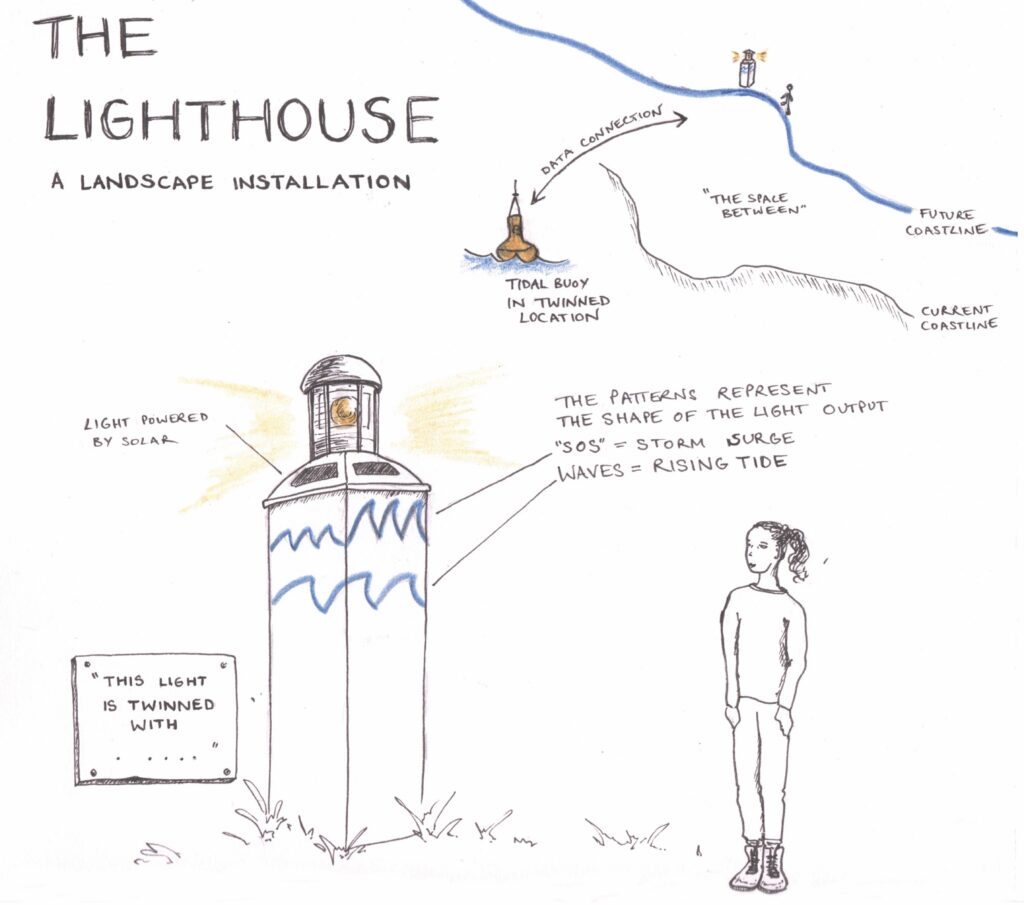 THE
LIGHTHOUSE
A LANDSCAPE INSTALLATION
DATA CONNECTION
"THE SPACE
BETWEEN"
FUTURE
COASTLINE
TIDAL BUOY
IN TWINNED
LOCATION
CURRENT
COASTLINE
LIGHT POWERED
BY SOLAR
THE PATTERNS REPRESENT
THE SHAPE OF THE LIGHT OUTPUT
"SOS" = STORM SURGE
WAVES = RISING TIDE
"THIS LIGHT
IS TWINNED
WITH
. . . . ."